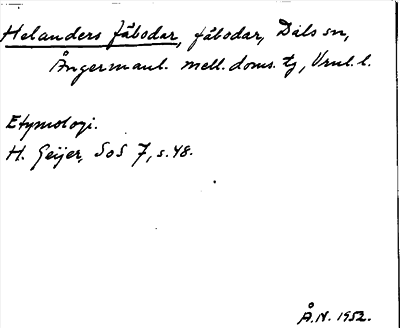 Helanders fäbodar, fäbodar, Dals sn,
Ångermanl. mell. doms. tg, Vrnl. l.
Etymologi.
H. Geijer, SoS 7, s. 48.
Å.N. 1952.